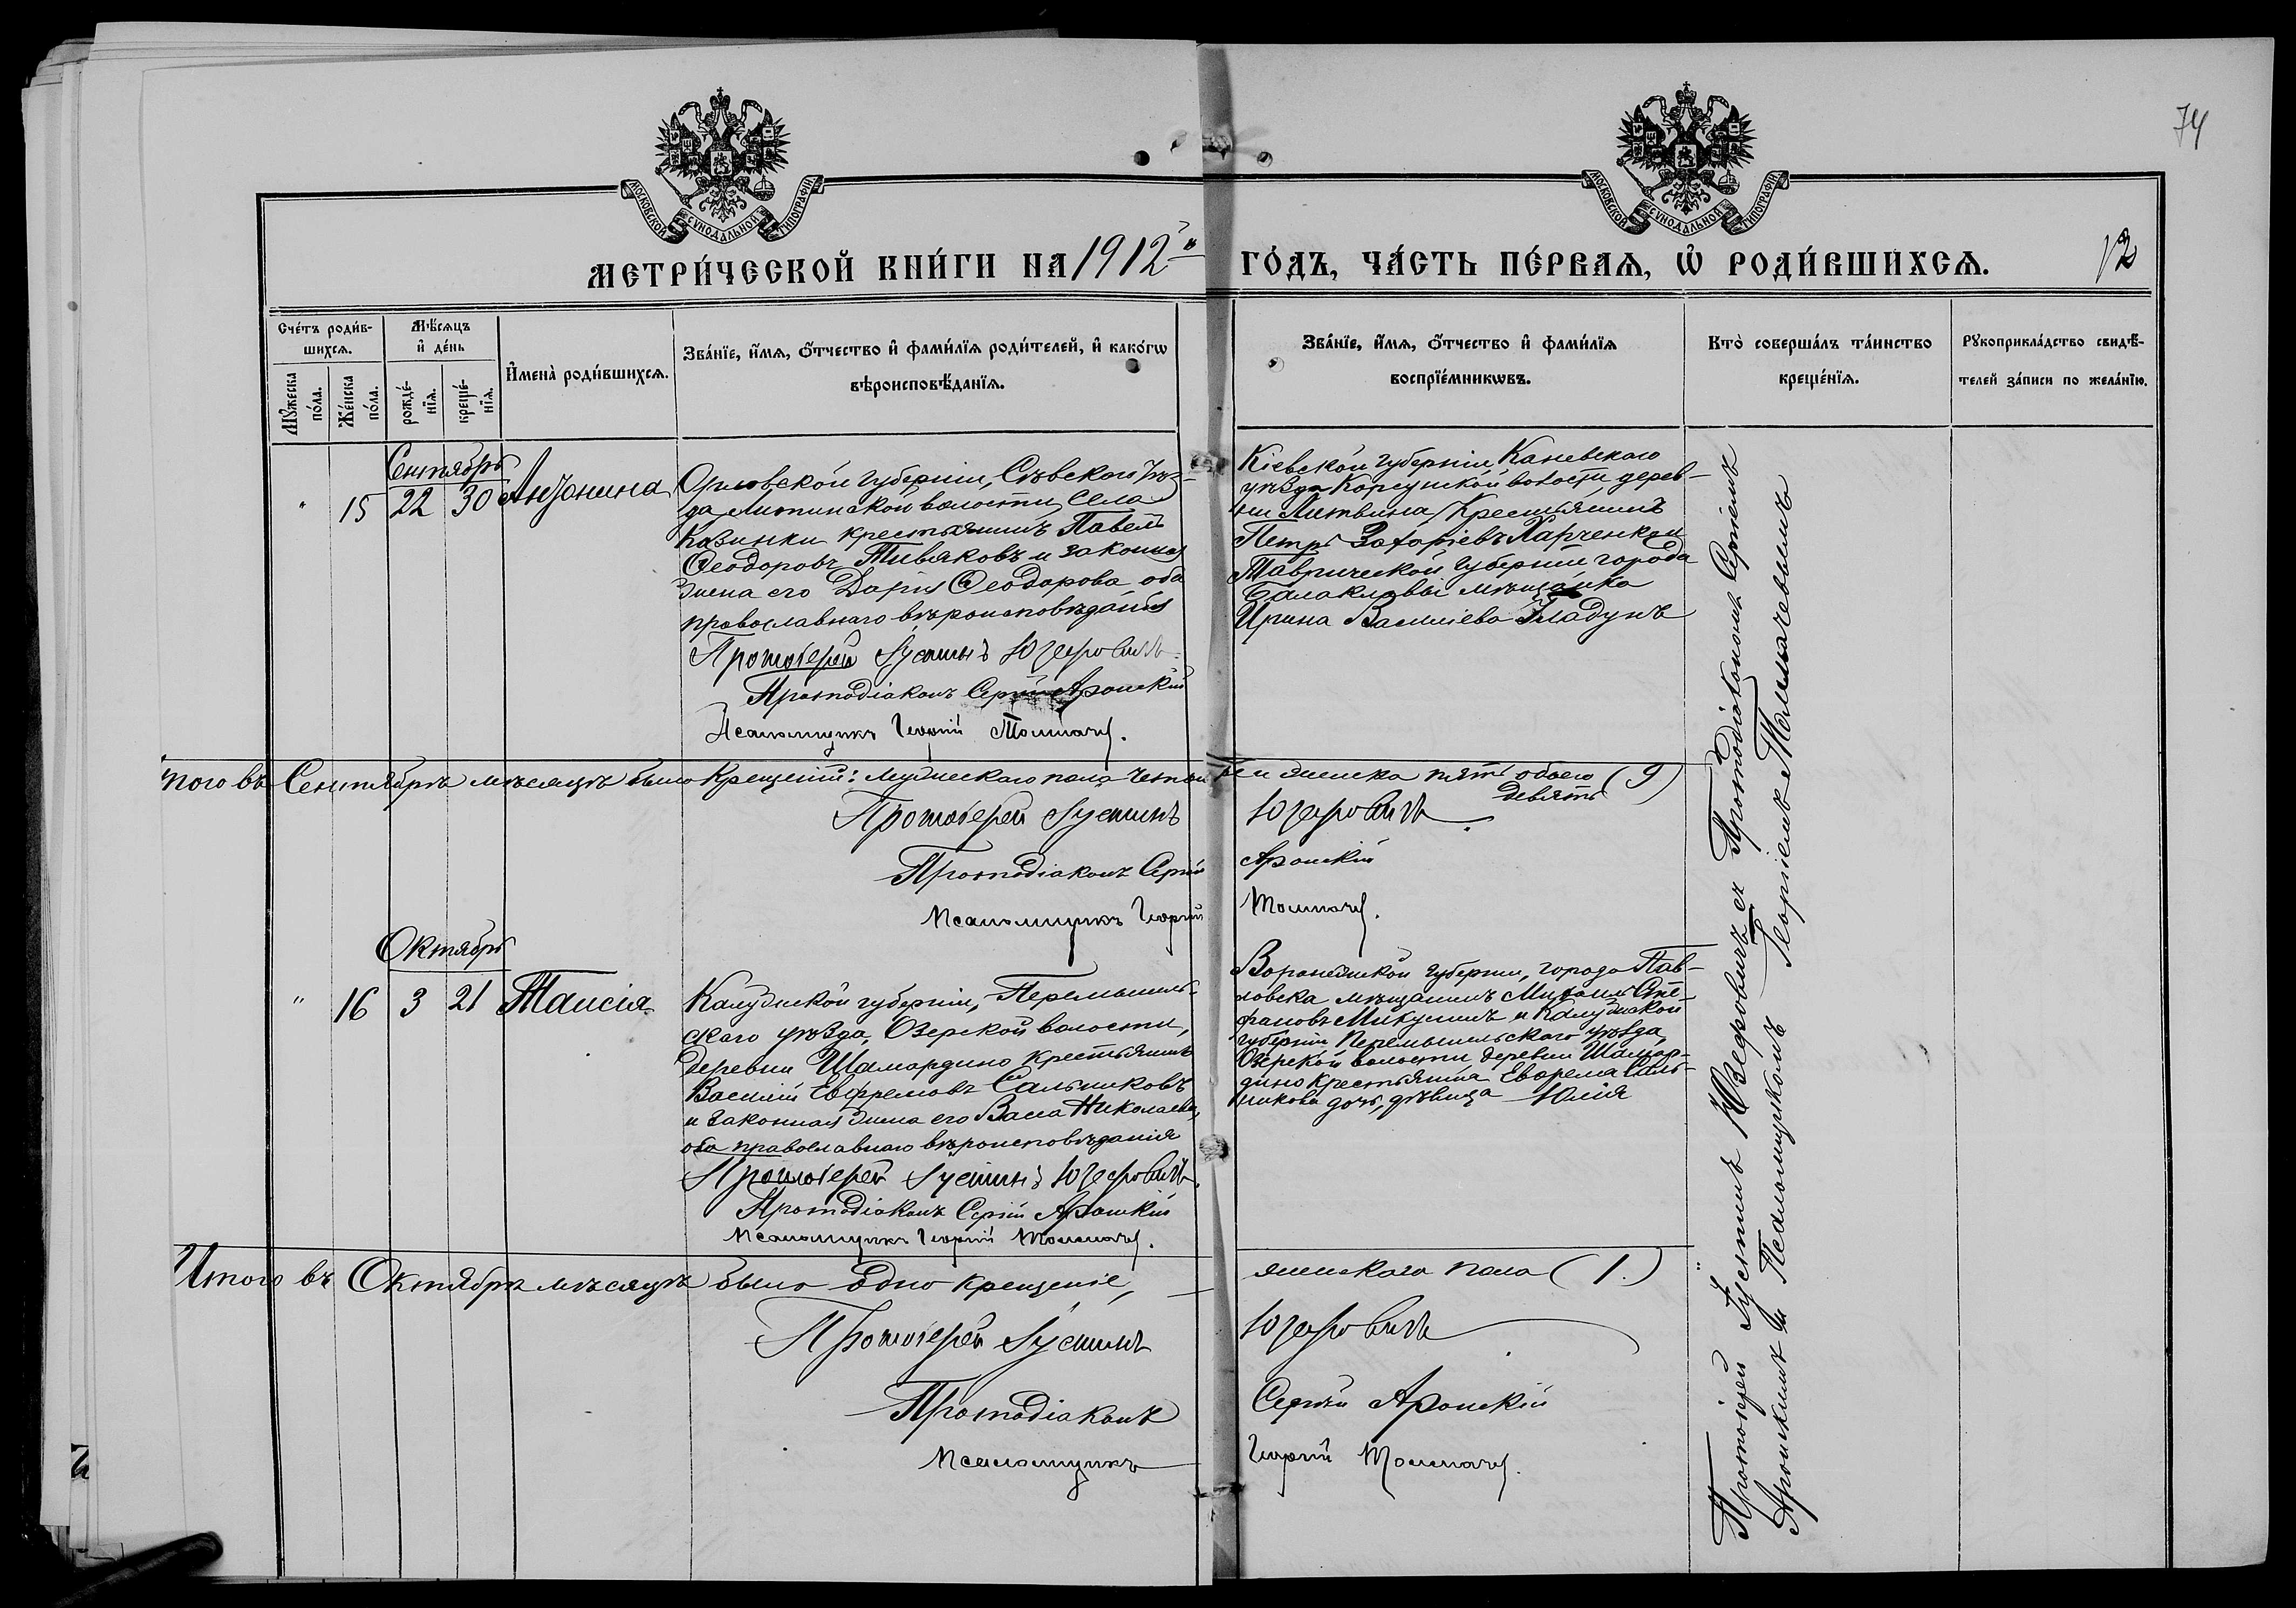 74
МОСКОВСКОЙ СУНОДАЛЬНОЙ ТИПОГРАФІИ
МОСКОВСКОЙ СУНОДАЛЬНОЙ ТИПОГРАФІИ
МЕТРИ́ЧЕСКОЙ КНИ́ГИ НА 1912й ГО́ДЪ, ЧА́СТЬ ПЕ́РВАЯ, Ѡ҆ РОДИ́ВШИХСЯ.
12
Сче́тъ роди́в-
шихся.
Мꙋ́жеска
по́ла.
Же́нска
по́ла.
Мѣ́сяцъ
и҆ де́нь
рожде́-
нїя.
креще́-
нїя.
И҆мена̀ роди́вшихся.
Зва́нїе, и҆́мя, ѻ҆́тчество и҆ фами́лїя роди́телей, и҆ како́гѡ
вѣроисповѣ́данїя.
Зва́нїе, и҆́мя, ѻ҆́тчество и҆ фами́лїя
воспрїе́мникѡвъ.
Кто̀ соверша́лъ та́инство
креще́нїя.
Рꙋкоприкла́дство свидѣ́-
телей за́писи по жела́нїю.
Сентябрь
" 15 22 30 Антонина
Орловской губерніи, Сѣвскаго уѣз-
да Литинской волости, села
Козинки крестьянинъ Павелъ
Ѳеодоровъ Тивяковъ и законная
жена его Дарія Ѳеодорова оба
православнаго вѣроисповѣданія
Протоіерей Іустинъ Юзефовичъ.
Протодіаконъ Сергій Аронскій
Псаломщикъ Георгій Толмачевъ.
Кіевской губерніи Каневскаго
уѣзда Корсунской волости, дерев-
ни Литвина крестьянинъ
Петръ Захаріевъ Харченко и
Таврической губерніи города
Балаклавы мѣщанка
Ирина Васильева Гладунъ
Итого въ Сентябрѣ мѣсяцѣ было крещеній: мужескаго пола четыре и женска пять обоего
девять (9)
Протоіерей Іустинъ Юзефовичъ.
Протодіаконъ Сергій Аронскій
Псаломщикъ Георгій Толмачевъ.
Октябрь
" 16 3 21 Таисія
Калужской губерніи, Перемышль-
скаго уѣзда, Озерской волости,
деревни Шамардино крестьянинъ
Василій Евфремовъ Сальниковъ
и законная жена его Васса Николаева,
оба православнаго вѣроисповѣданія
Протоіерей Іустинъ Юзефовичъ.
Протодіаконъ Сергій Аронскій
Псаломщикъ Георгій Толмачевъ.
Воронежской губерніи, города Пав-
ловска мѣщанинъ Михаилъ Сте-
фановъ Микулинъ и Калужской
губерніи Перемышльскаго уѣзда,
Озерской волости деревни Шамар-
дино крестьянина Евфрема Саль-
никова дочь, дѣвица Юлія
Итого въ Октябрѣ мѣсяцѣ было одно крещеніе, — женскаго пола (1.)
Протоіерей Іустинъ Юзефовичъ
Протодіаконъ Сергій Аронскій
Псаломщикъ Георгій Толмачевъ.
Протоіерей Іустинъ Юзефовичъ съ Протодіакономъ Сергіемъ
Аронскимъ и Псаломщикомъ Георгіемъ Толмачевымъ